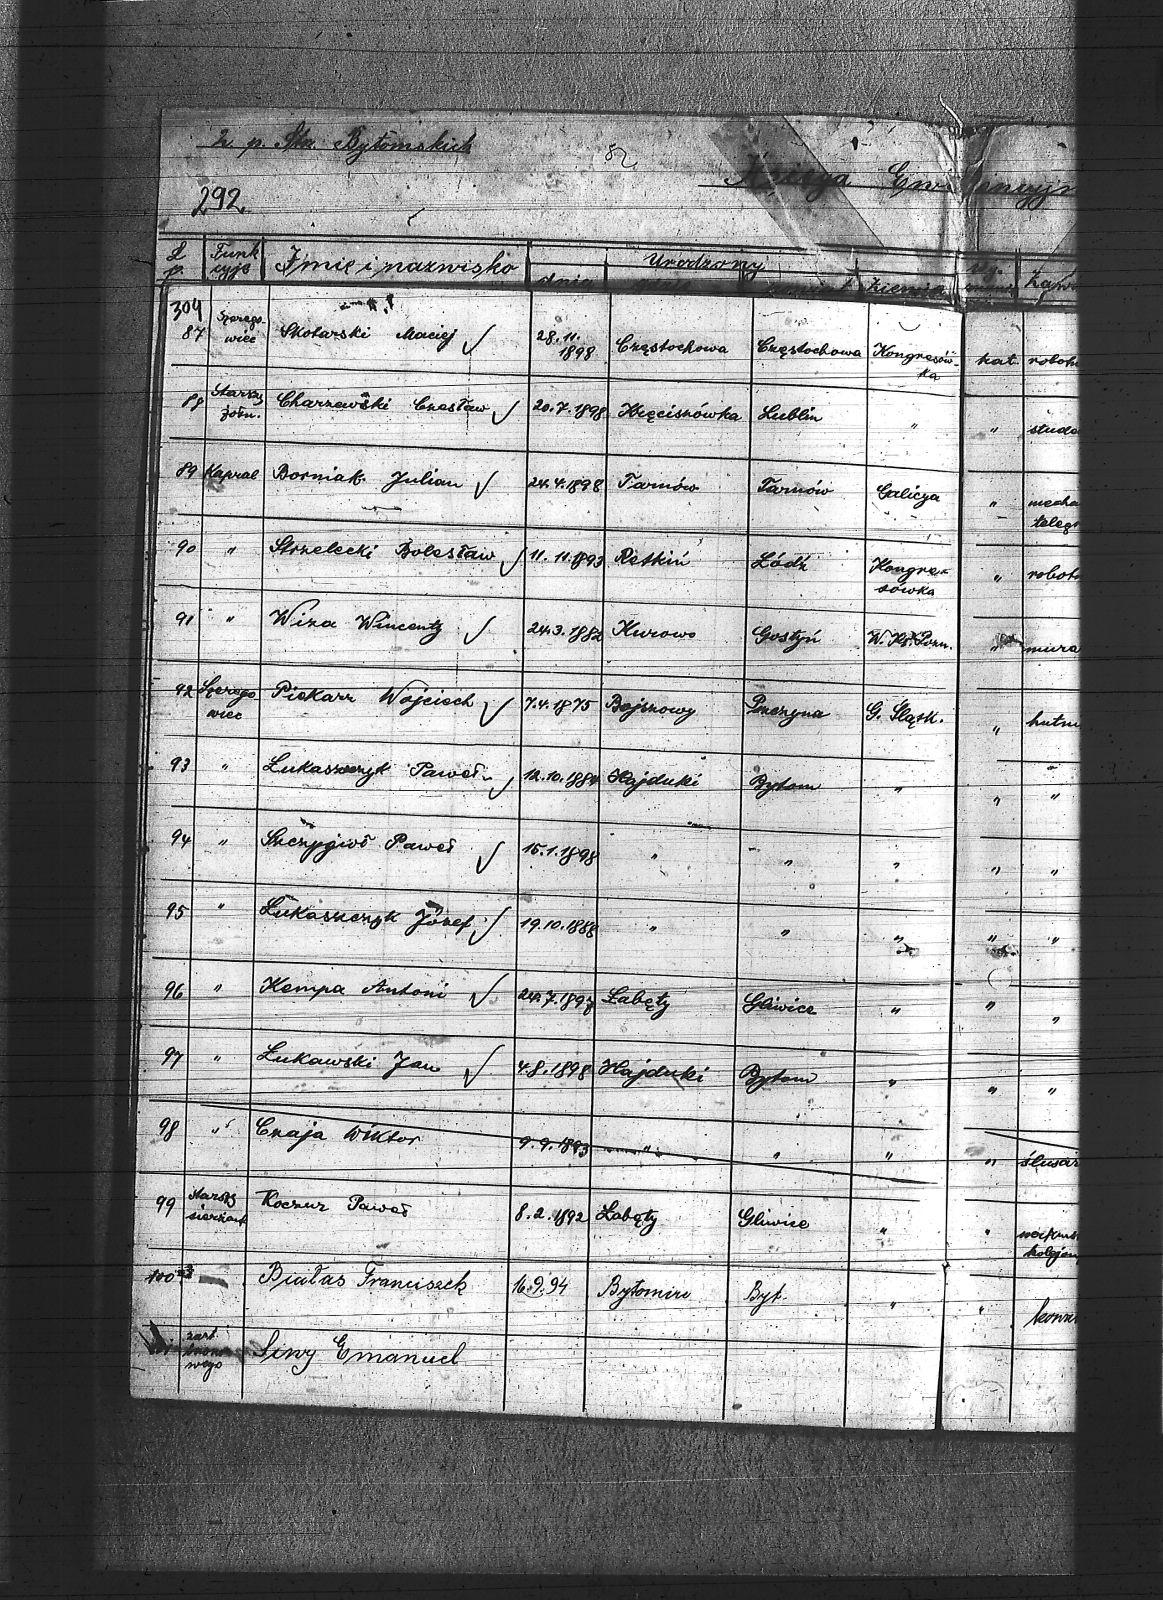 2 p. Strz. Bytomskich
82
Księga Ewidencyjn
292
L p. Funk cyje Imię i nazwisko Urodzony
dnia powiat Ziemia
304
87 Szerego- wiec Skotarski Maciej 28.11. 1898 Częstochowa Częstochowa Kongresów- ka kat. robotn
88 Starszy żołn. Charzewski Czesław 20.7.1898 Lublin " " stude
89 Kapral Borniak Julian 24.4.1898 Tarnów Tarnów Galicya " mecha telegr
90 " Strzelecki Bolesław 11.11.1893 Retkiń Łódź Kongre- sówka " robotn
91 " Wiza Wincenty 24.3.1882 Kurowo Gostyń W. Ks. Pozn. " mura
92 Szerego wiec Piekarz Wojciech 7.4.1875 Bojszowy Pszczyna G. Śląsk. " hutni
93 " Łukaszczyk Paweł 12.10.1884 Hajduki Bytom " " "
94 " Szczygioł Paweł 15.1.1898 " " " " "
95 " Łukaszczyk Józef 19.10.1888 " " " " "
96 " Kempa Antoni 24.7.1897 Łabęty Gliwice " " "
97 " Łukawski Jan 4.8.1898 Hajduki Bytom " " "
98 " Czaja Wiktor 9.9.1893 " " " " ślusarz
99 Starszy sierżant Koczur Paweł 8.2.1892 Łabęty Gliwice " " kolejow
100 Białas Franciszek 16.9.94 Byt. " "
Siwy Emanuel